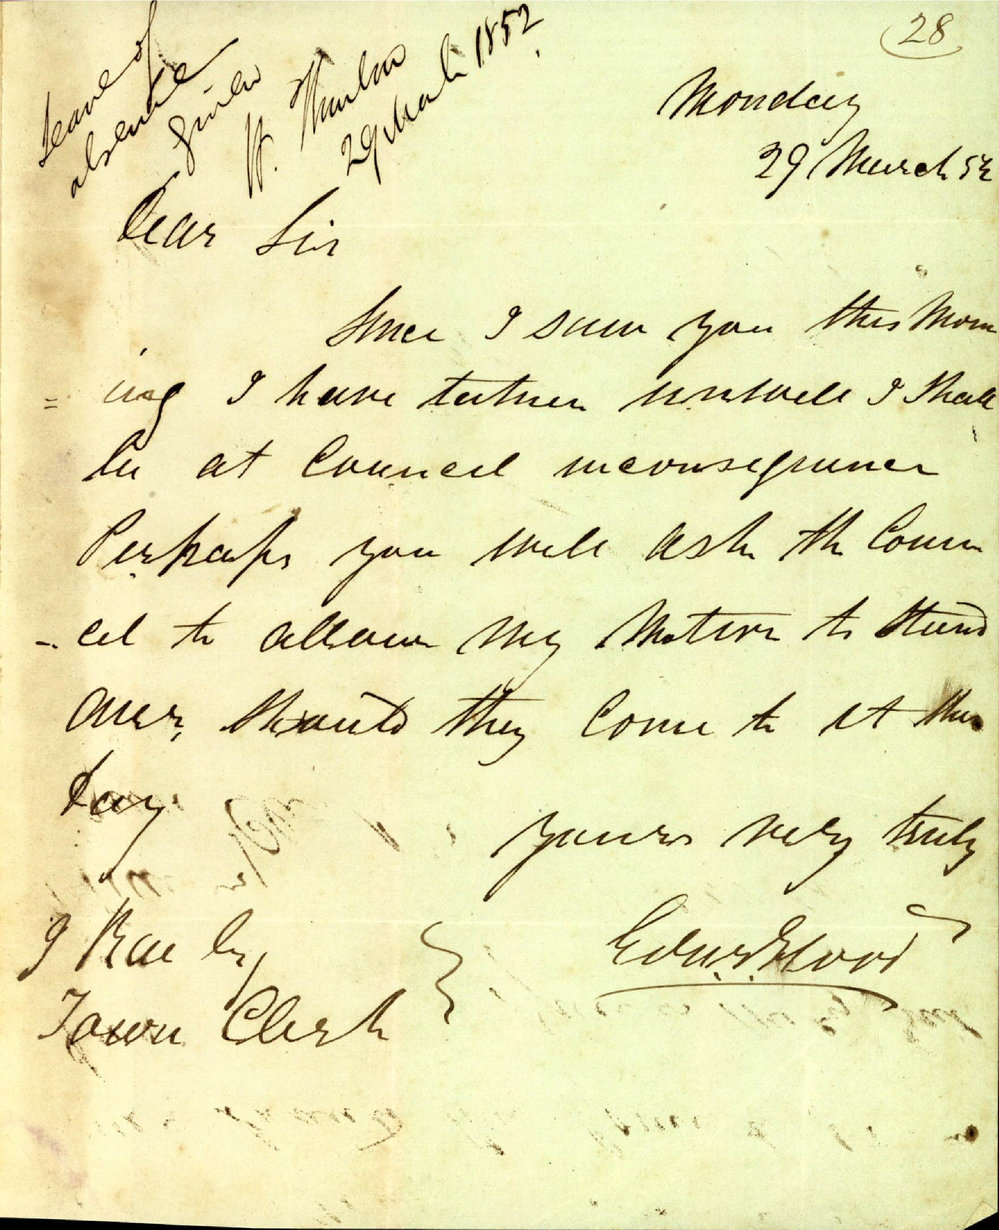 28
Leave of
absence
given
29 March 1852
Monday
29 March 52
Dear Sir
Since I saw you this Morn
= ing I have taken unwell I shall
be at Council in consequence
Perhaps you will ask the Coun
- cil to allow my Motion to Stand
over, should they come to it this
day
yours very truly
I Rae Esq
Town Clerk